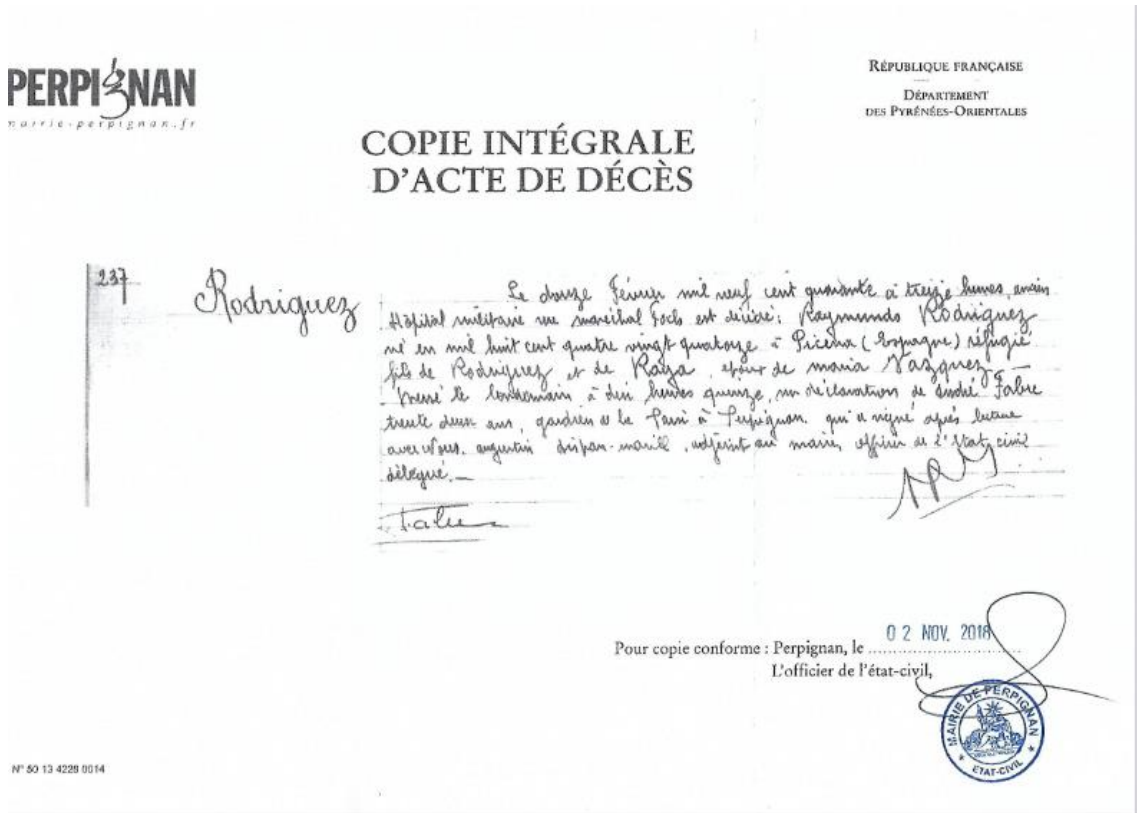 PERPIGNAN
mairie-perpignan.fr
RÉPUBLIQUE FRANÇAISE
DÉPARTEMENT
DES PYRÉNÉES-ORIENTALES
COPIE INTÉGRALE
D'ACTE DE DÉCÈS
237
Rodriguez
Le douze Février mil neuf cent quarante à treize heures, ancien
Hôpital militaire rue maréchal Foch est décédé: Raymundo Rodriguez
né en mil huit cent quatre vingt quatorze à Picena (Espagne) réfugié
fils de Rodriguez et de Raya, époux de maria Vazquez_
le lendemain à dix heures quinze, sur déclaration de André Fabre
trente deux ans, gardien à Perpignan qui a signé après lecture
avec Nous, augustin, adjoint au maire, officier de l'Etat civil
délégué._
Pour copie conforme : Perpignan, le 02 NOV. 2018
L'officier de l'état-civil,
MAIRIE DE PERPIGNAN
ETAT-CIVIL
N° 50 13 4228 0014